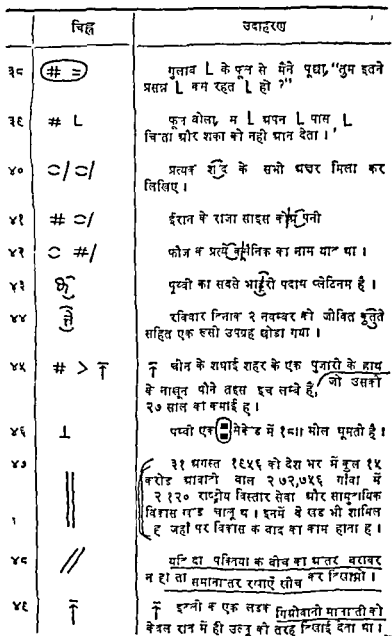 चिह्न उदाहरण
३८ # = गुलाब L के फूल से मैंने पूछा, "तुम इतने
प्रसन्न L कम रहत L हो ?"
३९ # L फूल बोला, म L अपन L पास L
चिंता और शका को नही आन देता ।
४० प्रत्यक शब्द के सभी अक्षर मिला कर
लिखिए ।
४१ # ईरान के राजा साइस को पनी
४२ # फौज क प्रत्ये सैनिक का नाम या था ।
४३ पृथ्वी का सबसे भारी पदाथ प्लेटिनम है ।
४४ रविवार दिनाक २ नवम्बर को जीवित कुत्ते
सहित एक रूसी उपग्रह छोडा गया ।
४५ # > चीन के शघाई शहर के एक पुजारी के हाथ
के नाखून पौने तइस इच लम्बे है, जो उसकी
२७ साल का कमाई ह ।
४६ ⊥ पथ्वी एक सेकेड में १८॥ मील घूमती है ।
४७ ३१ अगस्त १९५६ को देश भर में कुल १५
करोड आबादी वाल २७२,७५६ गांवा में
२१२० राष्ट्रीय विस्तार सेवा और सामुदायिक
विकास खड चालू थ । इनमें वे खड भी शामिल
ह जहाँ पर विकास क बाद का काम होना ह ।
४८ // यदि दा पक्तिया क बीच का अतर बराबर
न हो ता समानातर रेखाएँ खीच कर दिखाओ ।
४९ इटली क एक लडक को
केवल रात में ही उल्लू की तरह दिखाई देता था ।